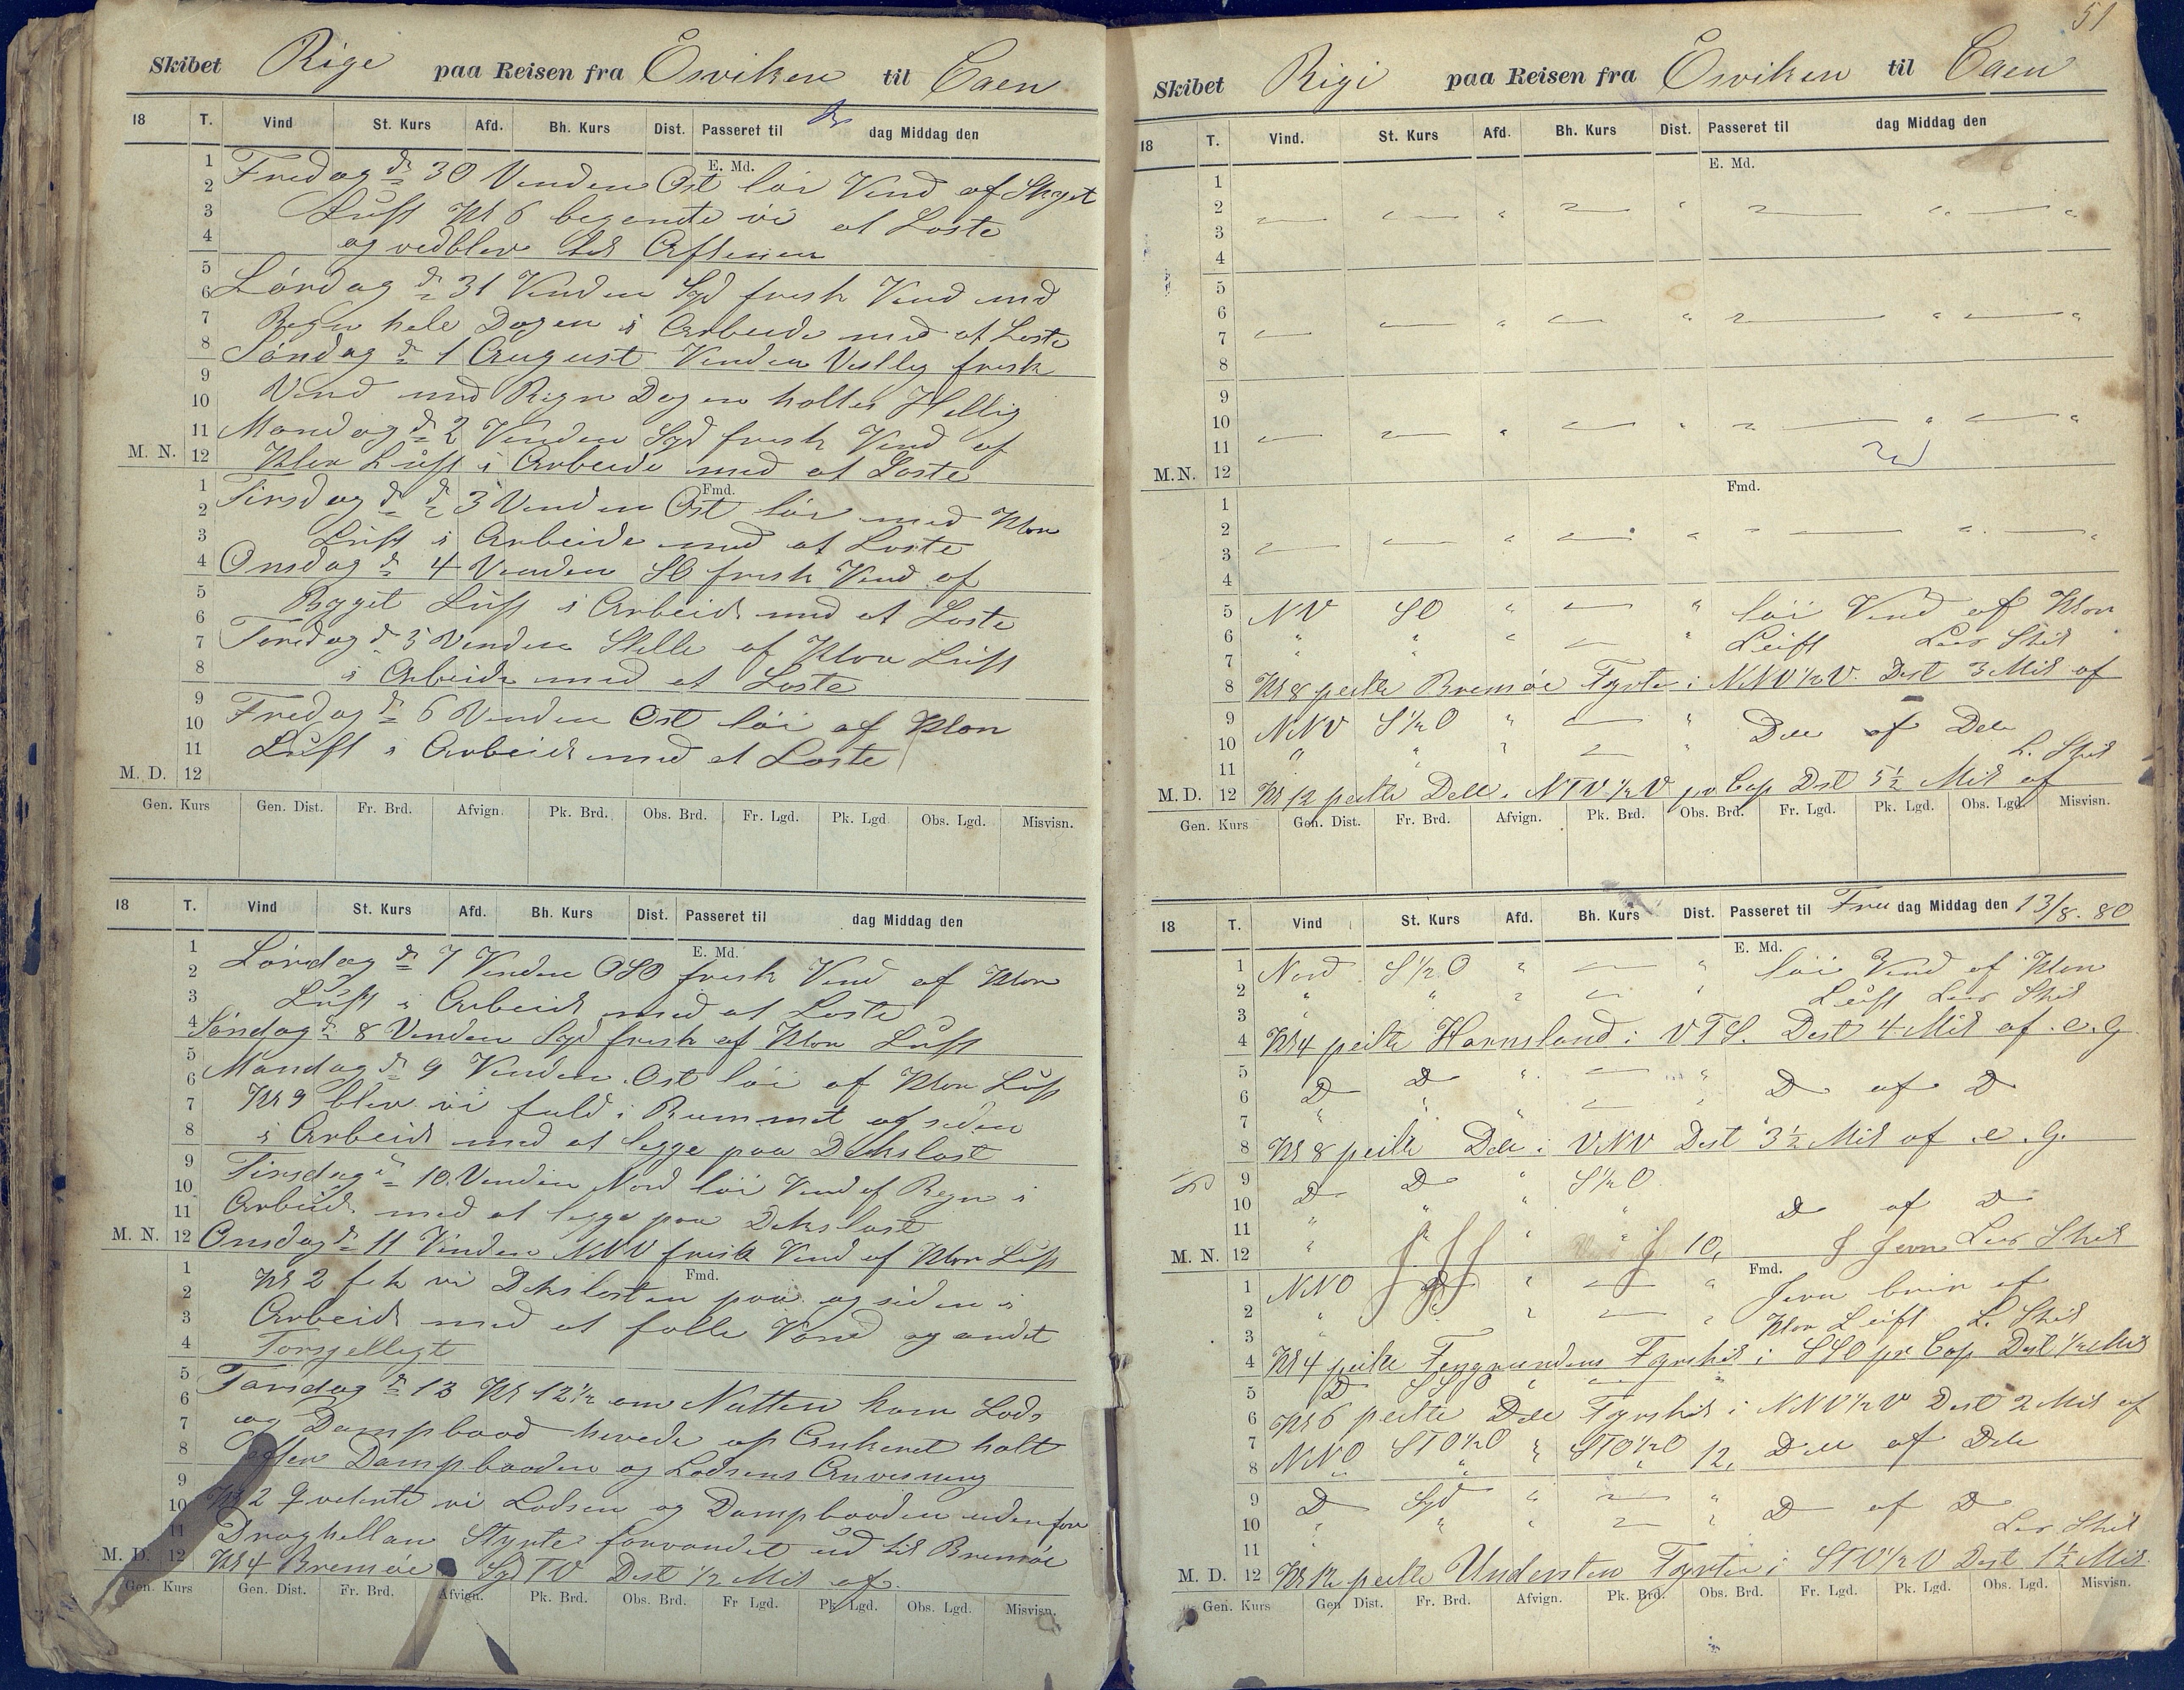 Skibet Rige paa Reisen fra Ösviken til Caen
18 T. Vind St. Kurs Afd. Bh. Kurs Dist. Passeret til dag Middag den
E. Md.
1 Fredag dn 30 Vinden Ost löi Vind af Skyet
2
3 Luft Kl 6 begendte vi at Laste
4 og vedblev til Aftenen
5
6 Lördag dn 31 Vinden Syd frisk Vind med
7 Regn hele Dagen i Arbeide med at Laste
8 Söndag dn 1 August Vinden Vestlig frisk
9
10 Vind med Regn Dagen holtes Hellig
11 Mandag dn 2 Vinden Syd frisk Vind af
M. N. 12 Klar Luft i Arbeide med at Laste
Fmd.
1 Tirsdag dn dn 3 Vinden Ost löi med Klar
2
3 Luft i Arbeide med at Laste
4 Onsdag dn 4 Vinden SO frisk Vind af
5
6 Byget Luft i Arbeide med at Laste
7 Torsdag dn 5 Vinden Stille af Klar Luft
8 i Arbeide med at Laste
9
10 Fredag dn 6 Vinden Ost löi af Klar
11 Luft i Arbeide med at Laste
M. D. 12
Gen. Kurs Gen. Dist. Fr. Brd. Afvign. Pk. Brd. Obs. Brd. Fr. Lgd. Pk. Lgd. Obs. Lgd. Misvisn.
18 T. Vind St. Kurs Afd. Bh. Kurs Dist. Passeret til dag Middag den
E. Md.
1 Lördag dn 7 Vinden OSO frisk Vind af Klar
2
3 Luft i Arbeide med at Laste
4 Söndag dn 8 Vinden Syd frisk af Klar Luft
5
6 Mandag dn 9 Vinden Ost löi af Klar Luft
7 Kl 9 blev vi fuld i Rummet og siden
8 i Arbeide med at legge paa Dekslast
9
10 Tirsdag dn 10 Vinden Nord löi Vind af Regn i
11 Arbeide med at legge paa Dekslast
M. N. 12 Onsdag dn 11 Vinden NNV frisk Vind af Klar Luft
Fmd.
1
2 Kl 2 fek vi Dekslasten paa og siden i
3 Arbeide med at folle Vand og andet
4 Forsjelligt
5
6 Torsdag dn 12 Kl 12½ om Natten kom Lods
7 og Dampbaad hevede op Ankeret holt
8 efter Dampbaaden og Lodsens Anvisning
9
10 Kl 2 qveterte vi Lodsen og Dampbaaden uden for
11 Draghellan Styrte forvandet ud til Bremöe
M. D. 12 Kl 4 Bremöe i Syd TV Dist ½ Mil af
Gen. Kurs Gen. Dist. Fr. Brd. Afvign. Pk. Brd. Obs. Brd. Fr Lgd. Pk. Lgd. Obs. Lgd. Misvisn.
51
Skibet Rigi paa Reisen fra Ösviken til Caen
18 T. Vind. St. Kurs Afd. Bh. Kurs Dist. Passeret til dag Middag den
E. Md.
1
2 " " " " " " " "
3
4
5
6 " " " " " " " "
7
8
9
10 " " " " " " " "
11
M. N. 12
Fmd.
1
2 " " " " " " " "
3
4
5 NV SO " " löi Vind af Klar
6 " " " " Luft Lens Skib
7
8 Kl 8 peilte Bremöe Fyrte i NNV½V. Dist 3 Mil af
9 NNV S½O " " Dele af Dele
10 " " " " L. Skib
11
M. D. 12 Kl 12 peilte Dele i NTV½V pr Cop Dist 5½ Mil af
Gen. Kurs Gen. Dist. Fr. Brd. Afvign. Pk. Brd. Obs. Brd. Fr. Lgd. Pk. Lgd. Obs. Lgd. Misvisn.
18 T. Vind St. Kurs Afd. Bh. Kurs Dist. Passeret til Fre dag Middag den 13/8. 80
E. Md.
1 Nord S½O " " löi Vind af Klar
2 " " " " Luft Lens Skib
3
4 Kl 4 peilte Harnsland i VTS. Dist 4 Mil af. e. G
5 D D " " D af D
6
7 " " " "
8 Kl 8 peilte Dele i VNV Dist 3½ Mil af .e. G.
9 D D " S½O
10 " D af D
11 "
M. N. 12 " " " 10, J Jevn Lens Skib
Fmd.
1 NNO D " " Jevn bris af
2 " " " Klar Luft L. Skib
3 "
4 Kl 4 peilte Fingrundens Fyrskib i SSO pr Cop Dist ½ Mil
5 D SSO " "
6 Kl 6 peilte Dele Fyrskib i NNV½V Dist 2 Mil af
7 NNO STO½O " STO½O 12, Dele af Dele
8 " " "
9 D Syd " " D af D
10 " " " " Lens Skib
11 "
M. D. 12 Kl 12 peilte Understen Fyrten i STV½V Dist 1½ Mil.
Gen. Kurs Gen Dist. Fr. Brd. Afvign. Pk. Brd. Obs. Brd. Fr. Lgd. Pk. Lgd. Obs. Lgd. Misvisn.